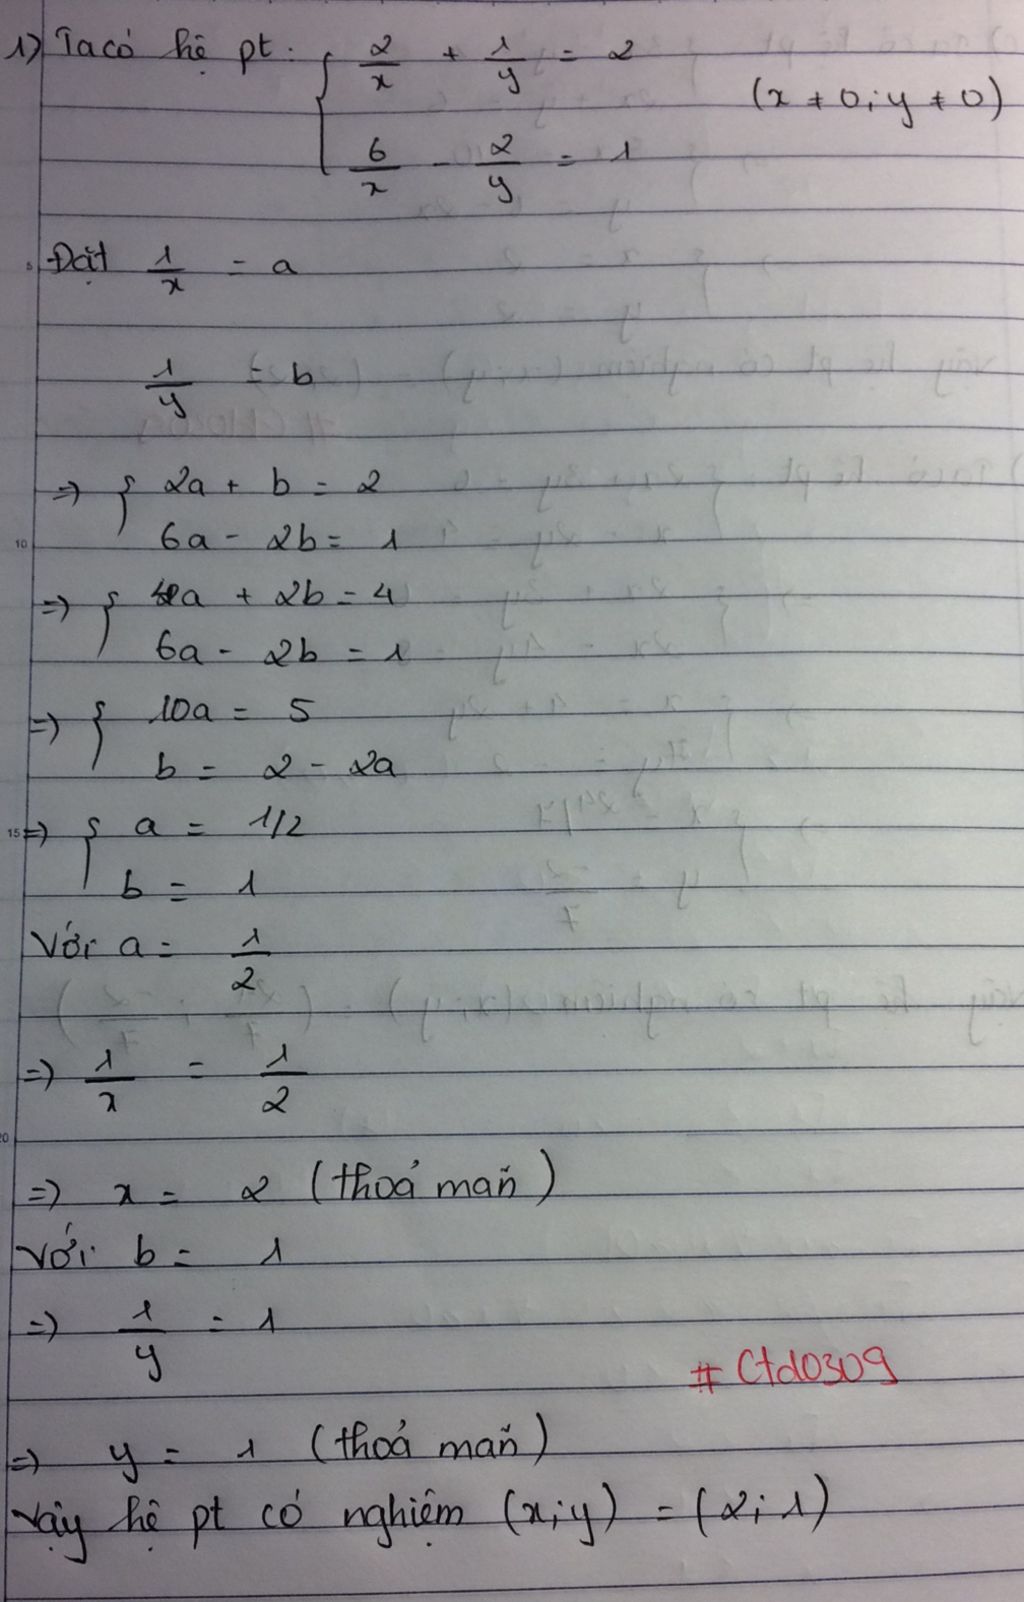 1) Ta có hệ pt: { 2/x + 1/y = 2
(x ≠ 0; y ≠ 0)
6/x - 2/y = 1
5
Đặt 1/x = a
1/y = b
=> { 2a + b = 2
10
6a - 2b = 1
=> { 4a + 2b = 4
6a - 2b = 1
=> { 10a = 5
b = 2 - 2a
15
=> { a = 1/2
b = 1
Với a = 1/2
=> 1/x = 1/2
20
=> x = 2 (thoả mãn)
Với b = 1
=> 1/y = 1
# Ctd0309
=> y = 1 (thoả mãn)
Vậy hệ pt có nghiệm (x;y) = (2; 1)